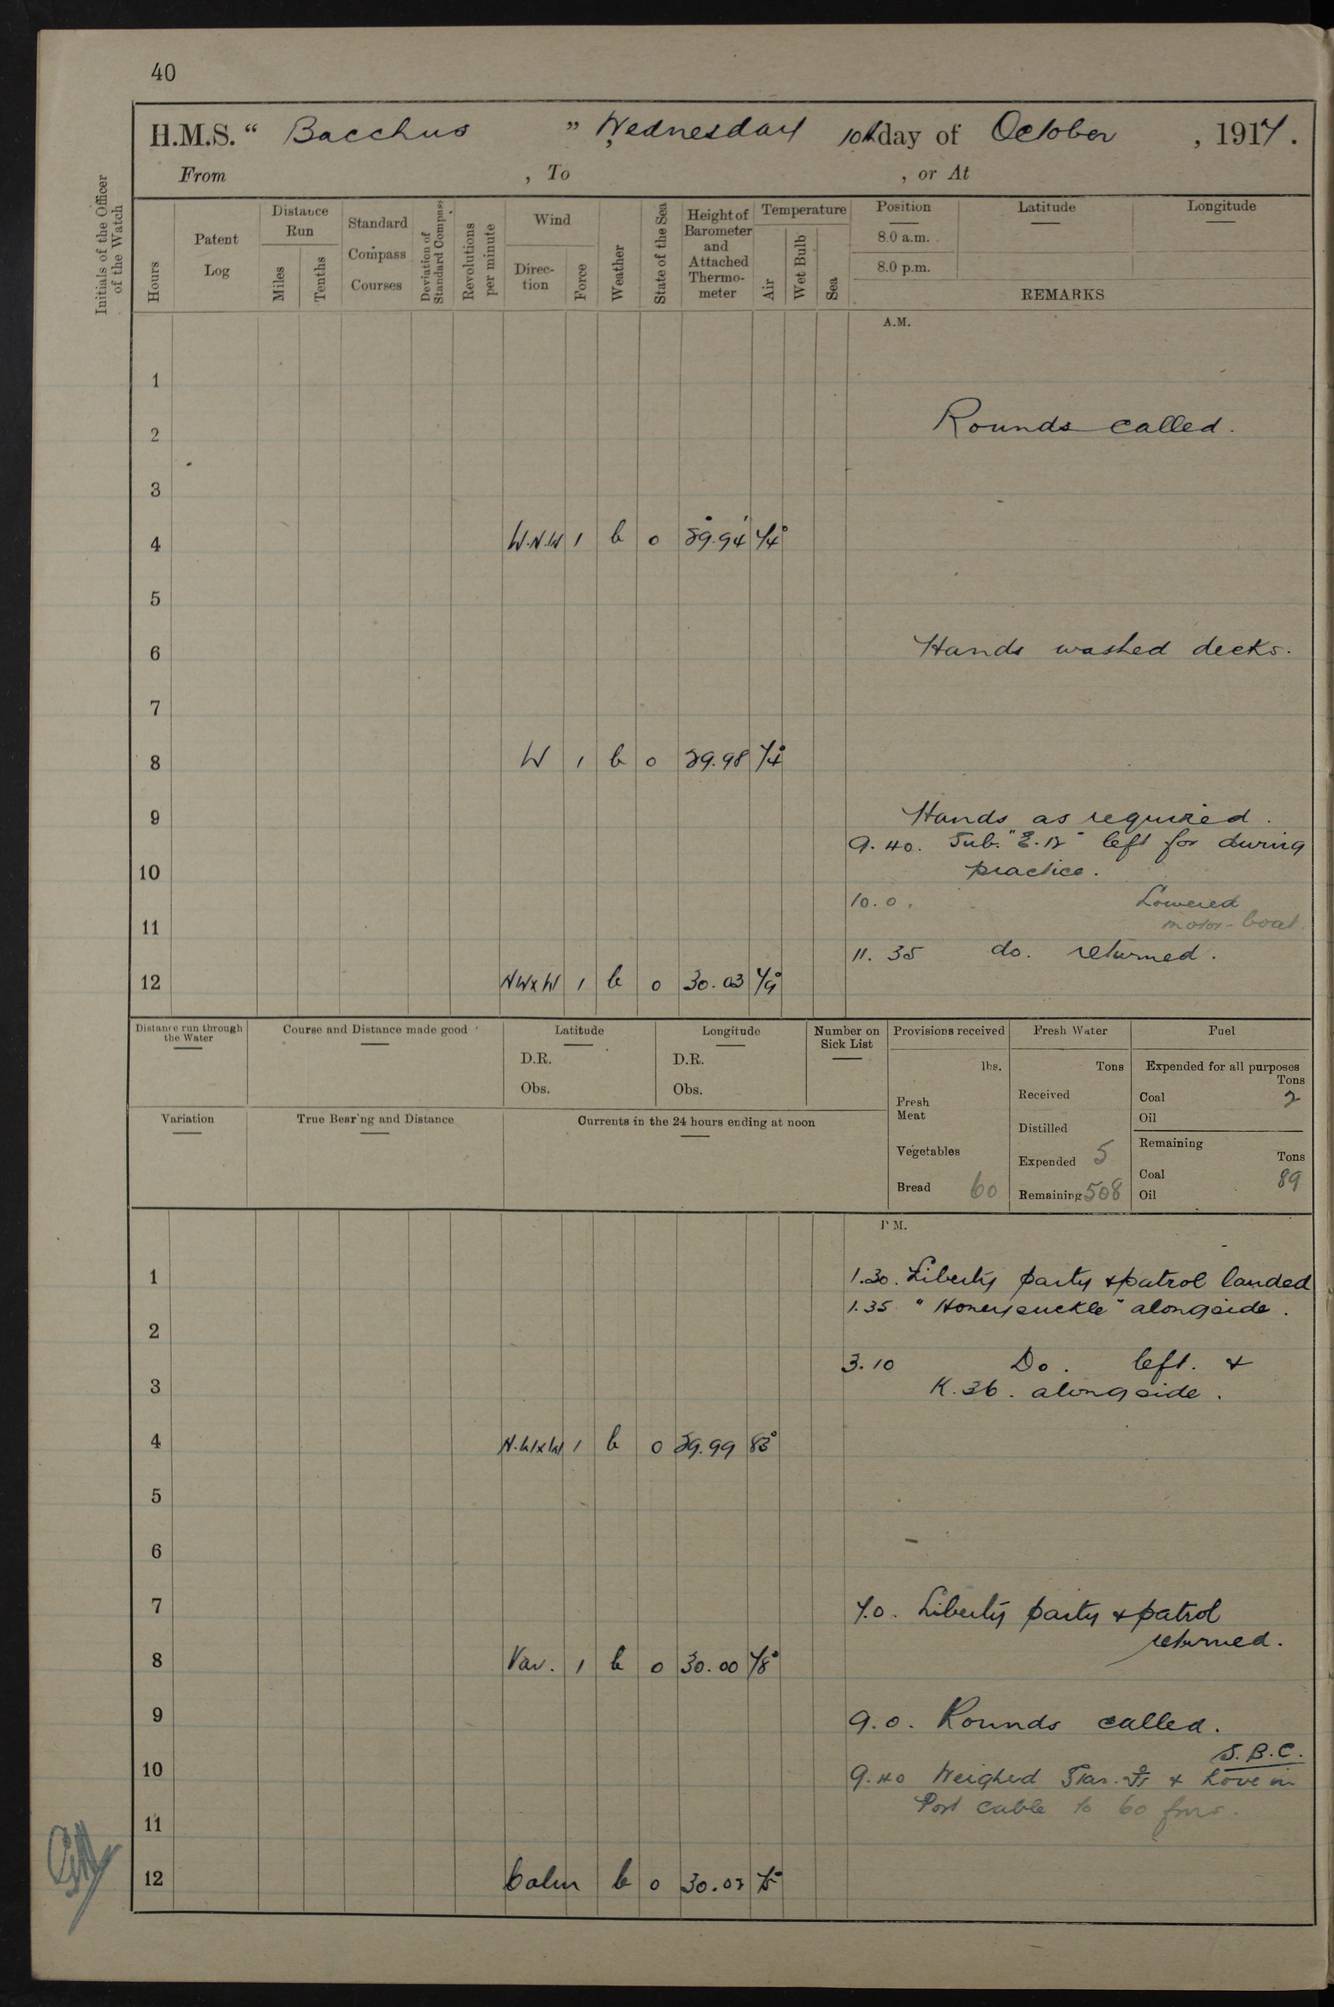 40
H.M.S. "Bacchus", Wednesday 10th day of October, 1917.
From , To , or At
Initials of the Officer of the Watch
Hours
Patent Log
Distance Run
Miles
Tenths
Standard Compass Courses
Deviation of Standard Compass
Revolutions per minute
Wind
Direction
Force
Weather
State of the Sea
Height of Barometer and Attached Thermometer
Temperature
Air
Wet Bulb
Sea
Position Latitude Longitude
8.0 a.m.
8.0 p.m.
REMARKS
A.M.
1
2 Rounds called.
3
4 W.N.W 1 b o 29.94 74°
5
6 Hands washed decks.
7
8 W 1 b o 29.98 74°
9 Hands as required.
9.40. Sub. "E.12" left for diving
10 practice.
10.0. Lowered
11 motor-boat.
11.35 do. returned.
12 NWxW 1 b o 30.03 79°
Distance run through the Water
Course and Distance made good
Latitude
D.R.
Obs.
Longitude
D.R.
Obs.
Number on Sick List
Provisions received
lbs.
Fresh Meat
Vegetables
Bread 60
Fresh Water
Tons
Received
Distilled
Expended 5
Remaining 508
Fuel
Expended for all purposes
Tons
Coal 2
Oil
Remaining
Tons
Coal 89
Oil
Variation
True Bearing and Distance
Currents in the 24 hours ending at noon
P.M.
1 1.30. Liberty party & patrol landed
1.35 "Honeysuckle" alongside.
2
3.10 Do. left. &
3 K.36. alongside.
4 N.WxW 1 b o 29.99 83°
5
6
7 7.0. Liberty party & patrol
returned.
8 Var. 1 b o 30.00 78°
9 9.0. Rounds called.
S.B.C.
10 9.40 Weighed Star. & hove in
Port cable to 60 fms.
11
12 Calm b o 30.02 75°